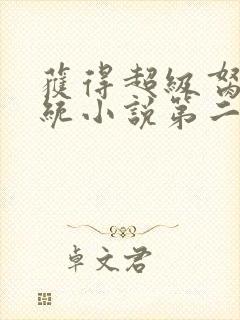 獲得超級
統小說第二
卓文君